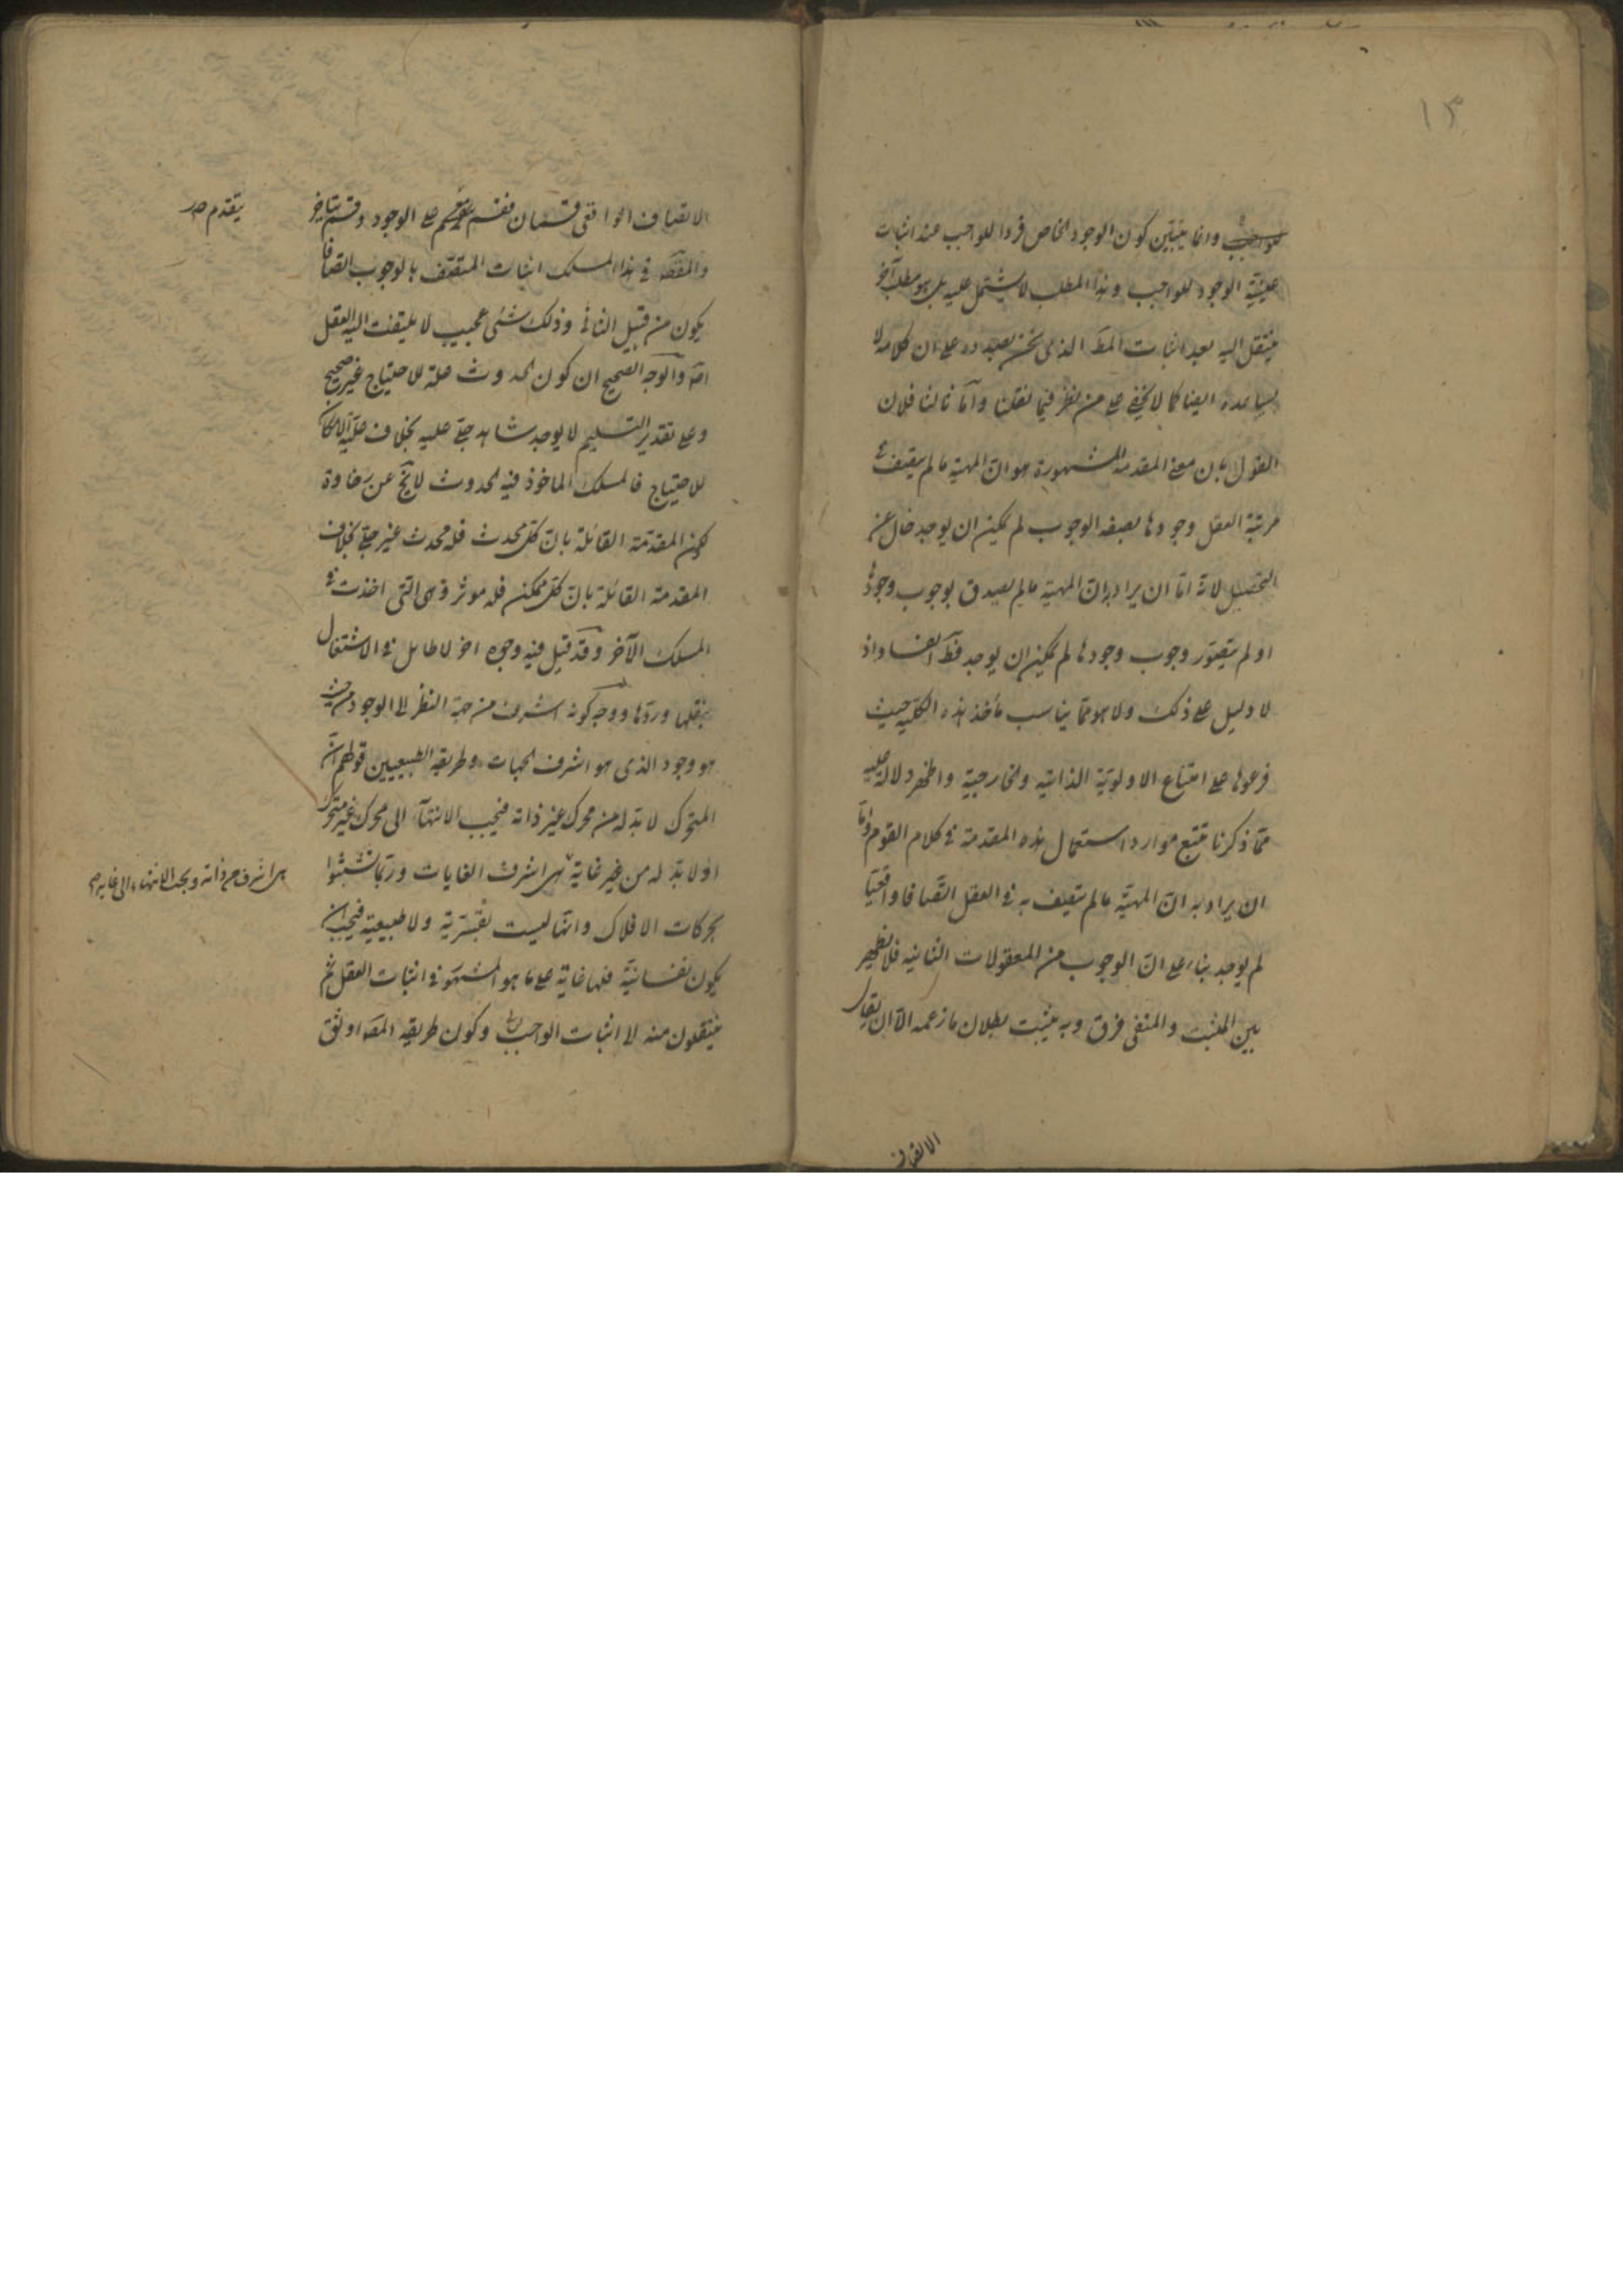 ١٣
للواجب وانما يتبين كون الوجود الخاص فردا للواجب عند اثبات
عينية الوجود للواجب وهذا المطلب لا يشتمل عليه بل هو مطلب آخر
ينتقل اليه بعد اثبات المط الذى نحن بصدده على ان كلامه لا
يساعده ايضا كما لا يخفى على من نظر فيما نقلنا وأما ثالثا فلان
القول بان معنى المقدمة المشهورة هو ان المهية ما لم يتصف فى
مرتبة العقل وجودها بصفه الوجوب لم يمكن ان يوجد خال عن
التحصيل لانه امّا ان يراد به ان المهية ما لم يصدق بوجوب وجودها
او لم يتصور وجوب وجودها لم يمكن ان يوجد فظ الفساد اذ
لا دليل على ذلك ولا هو ممّا يناسب مأخذ هذه الكلية حيث
فرعوها على امتناع الاولوية الذاتية والخارجية واظهر دلالة عليه
ممّا ذكرنا تتبع موارد استعمال هذه المقدمة فى كلام القوم وامّا
ان يراد به انّ المهيّة ما لم تتصف به فى العقل اتّصافا واقعيّا
لم يوجد بناء على انّ الوجوب من المعقولات الثانية فلا يظهر
بين المثبت والمنفى فرق وبه يثبت بطلان ما زعمه الّا ان يقال
الاتصاف
الاتصاف الواقعى قسمان فقسم على الوجود وقسم يتاخر
يتقدم صر
والمقصّ فى هذا المسلك اثبات المتّصف بالوجوب اتصافا
يكون من قبيل الثانى وذلك شئ عجيب لا يلتفت اليه العقل
اصّ والوجه الصحيح ان كون الحدوث علة للاحتياج غير صحيح
وعلى تقدير التسليم لا يوجد شاهد جلّى عليه بخلاف علّيّة الامكان
للاحتياج فالمسلك الماخوذ فيه الحدوث لا يخ عن رخاوة
لكون المقدّمة القائلة بانّ كلّ محدث فله محدث غير جلّى بخلاف
المقدمة القائلة بانّ كلّ ممكن فله موثر وهى التى اخذت فى
المسلك الآخر وقد قيل فيه وجوه اخر لا طائل فى الاشتغال
بنقلها وردّها ووجه كونه اشرف من جهة النظر الى الوجود من حيث
هو وجود الذى هو اشرف الجهات وطريقه الطبيعيين قولهم انّ
المتحرك لا بدّ له من محرك غير ذاته فيجب الانتهاء الى محرك غير متحرك
اذ لا بدّ له من غير غاية هى اشرف الغايات وربّما تشبّثوا
هى اشرف من ذاته ويجب الانتهاء الى غاية
بحركات الافلاك وانّها ليست بقسريّة ولا طبيعية فيجب ان
يكون نفسانيّة فلها غاية على ما هو المشهور فى اثبات العقل ثم
ينتقلون منه الى اثبات الواجب وكون طريقه المصّ اوثق